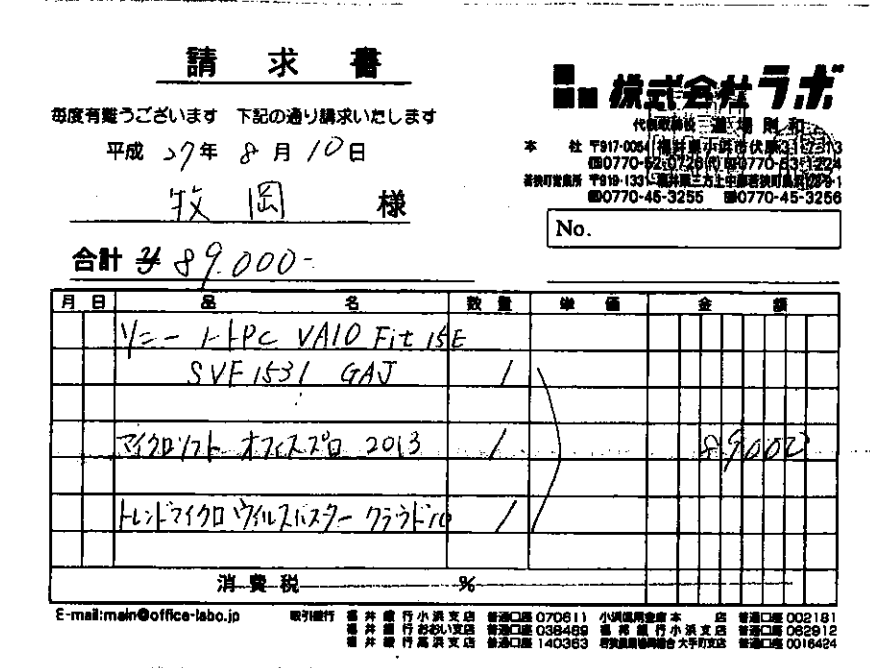 請求書
毎度有難うございます 下記の通り請求いたします
平成 27年 8月 10日
牧岡 様
合計 ¥ 89,000-
株式会社ラボ
代表取締役 道場則和
本 社 〒917-0054 福井県小浜市伏原
☎0770-52-0726(代)
若狭町営業所 〒919-1331 福井県三方上中郡若狭町
☎0770-45-3255 0770-45-3256
No.
月 日 品 名 数量 単価 金額
ソニー ノートPC VAIO Fit 15E
SVF1531 GAJ 1
マイクロソフト オフィスプロ 2013 1 89000
トレンドマイクロ ウイルスバスター クラウド10 1
消費税 %
E-mail:main@office-labo.jp 取引銀行 福井銀行小浜支店 普通口座 070611 小浜信用金庫本店 普通口座 002181
福井銀行おおい支店 普通口座 038489 福邦銀行小浜支店 普通口座 062912
福井銀行高浜支店 普通口座 140363 大手町支店 普通口座 0016424